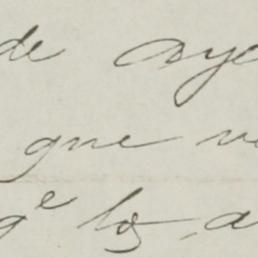 de aye
que ve
qᵉ los a